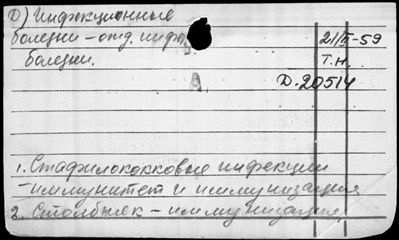 Д) Инфекционные
болезни – отд. инфе
болезни.
21/II-59
Т.Н.
Д.20514
А.
1. Стафилококковые инфекции
– иммунитет и иммунизация
2. Столбняк – иммунизация